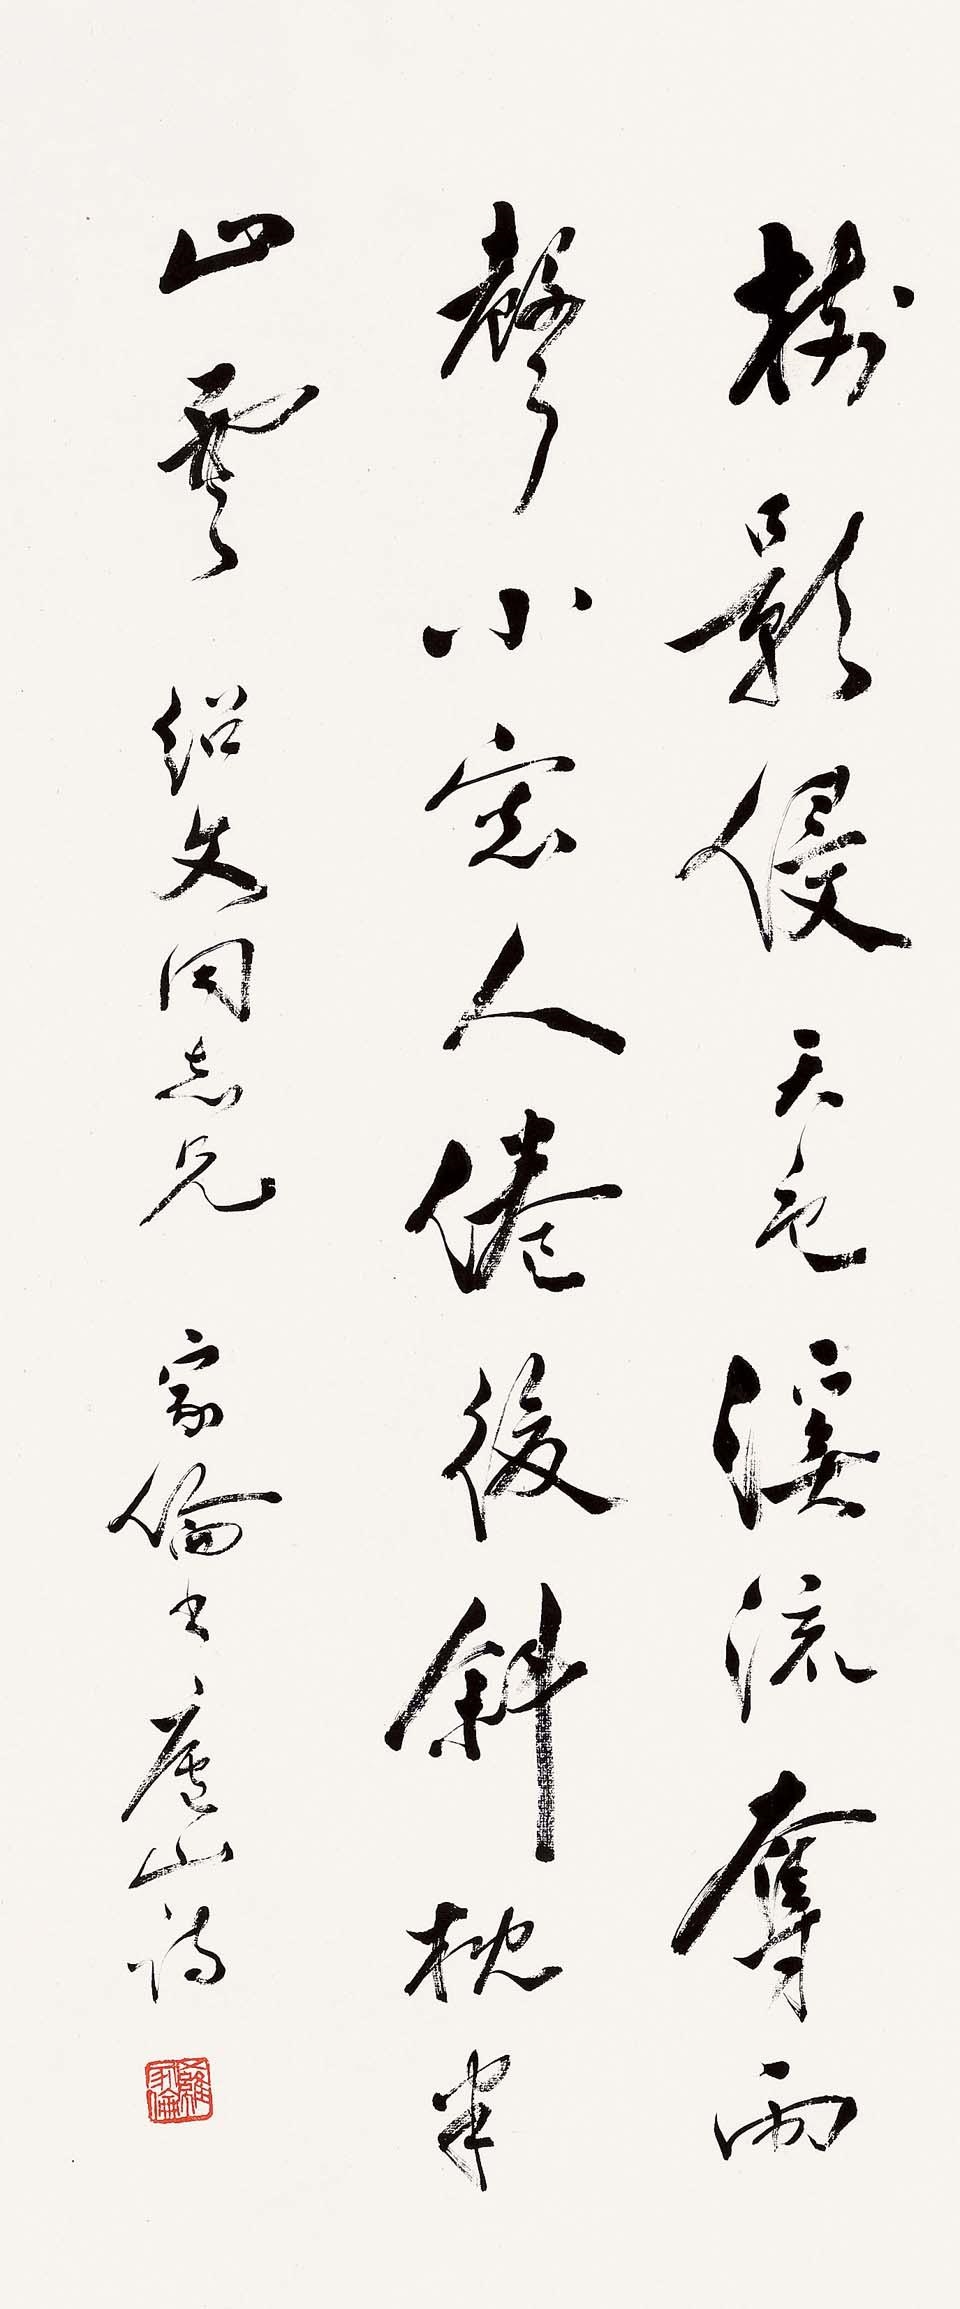 樹影侵天色溪流奪雨
聲小窓人倦後斜枕半
山雲 紹文同志兄 家倫書廬山詩
羅家倫